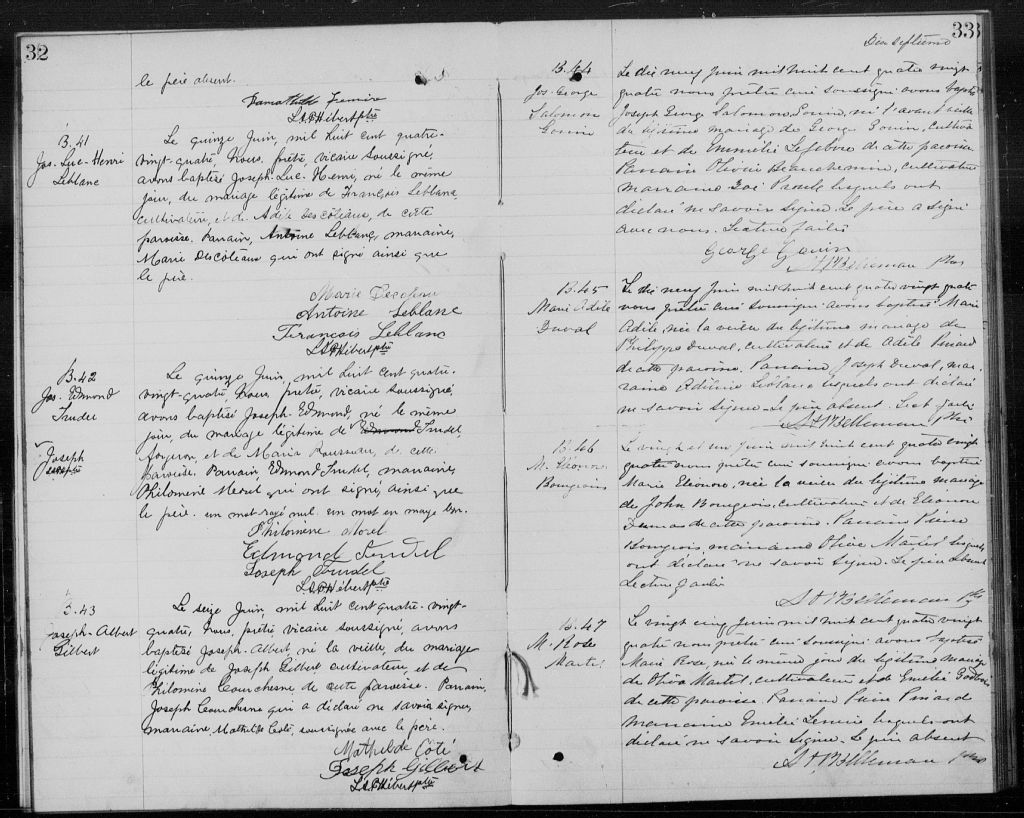 32
le père absent.
L.A.P. Hébert ptre
B. 41
Jos. Luc-Henri
Leblanc
Le quinze Juin, mil huit cent quatre-
vingt-quatre, Nous, prêtre, vicaire soussigné,
avons baptisé Joseph-Luc-Henri, né le même
jour, du mariage légitime de François Leblanc,
cultivateur, et de Adèle Descôteaux, de cette
paroisse. Parrain, Antoine Leblanc, marraine,
Marie Descôteaux qui ont signé ainsi que
le père.
Marie
Antoine Leblanc
François Leblanc
L.A.P. Hébert ptre
B. 42
Jos. Edmond
Trudel
Joseph
Le quinze Juin, mil huit cent quatre-
vingt-quatre, Nous, prêtre, vicaire soussigné,
avons baptisé Joseph-Edmond, né le même
jour, du mariage légitime de Edmond Trudel,
forgeron, et de Maria Rousseau, de cette
paroisse. Parrain, Edmond Trudel, marraine,
Philomène Morel qui ont signé, ainsi que
le père. un mot rayé nul. un mot en marge bon.
Philomène Morel
Edmond Trudel
Joseph Trudel
L.A.P. Hébert ptre
B. 43
Joseph-Albert
Gilbert
Le seize Juin, mil huit cent quatre-vingt-
quatre, Nous, prêtre, vicaire soussigné, avons
baptisé Joseph-Albert, né la veille, du mariage
légitime de Joseph Gilbert, cultivateur, et de
Philomène Courchesne de cette paroisse. Parrain,
Joseph Courchesne qui a déclaré ne savoir signer,
marraine, Mathilde Coté, soussignée avec le père.
Mathilde Côté
Joseph Gilbert
L.A.P. Hébert ptre
33
Dix septième
B. 44
Jos. George
Salomon
Gouin
Le dix neuf Juin mil huit cent quatre vingt
quatre nous prêtre curé soussigné avons baptisé
Joseph George Salomon Gouin, né l'avant veille
du légitime mariage de George Gouin, cultiva
teur et de Emmélie Lefebvre de cette paroisse
Parrain Olivier Beauchemin, cultivateur
marraine lesquels ont
déclaré ne savoir signer. Le père a signé
avec nous. Lecture faite
George Gouin
B. 45
Marie Adèle
Duval
Le dix neuf Juin mil huit cent quatre vingt quatre
nous prêtre curé soussigné avons baptisé Marie
Adèle, née la veille du légitime mariage de
Philippe Duval, cultivateur et de Adèle Pinard
de cette paroisse. Parrain Joseph Duval, mar-
raine Leblanc lesquels ont déclaré
ne savoir signer. Le père absent. Lect. faite
B. 46
M. Eléonore
Bourgeois
Le vingt et un Juin mil huit cent quatre vingt
quatre nous prêtre curé soussigné avons baptisé
Marie Eléonore, née la veille du légitime mariage
de John Bourgeois, cultivateur et de Eléonore
Dumas de cette paroisse. Parrain Pierre
Bourgeois, marraine Olive Martel lesquels
ont déclaré ne savoir signer. Le père absent
Lecture faite
B. 47
M. Rose
Martel
Le vingt cinq Juin mil huit cent quatre vingt
quatre nous prêtre curé soussigné avons baptisé
Marie Rose, née le même jour du légitime mariage
de Martel, cultivateur et de Emélie
de cette paroisse. Parrain Pierre Pinard
marraine Emélie lesquels ont
déclaré ne savoir signer. Le père absent